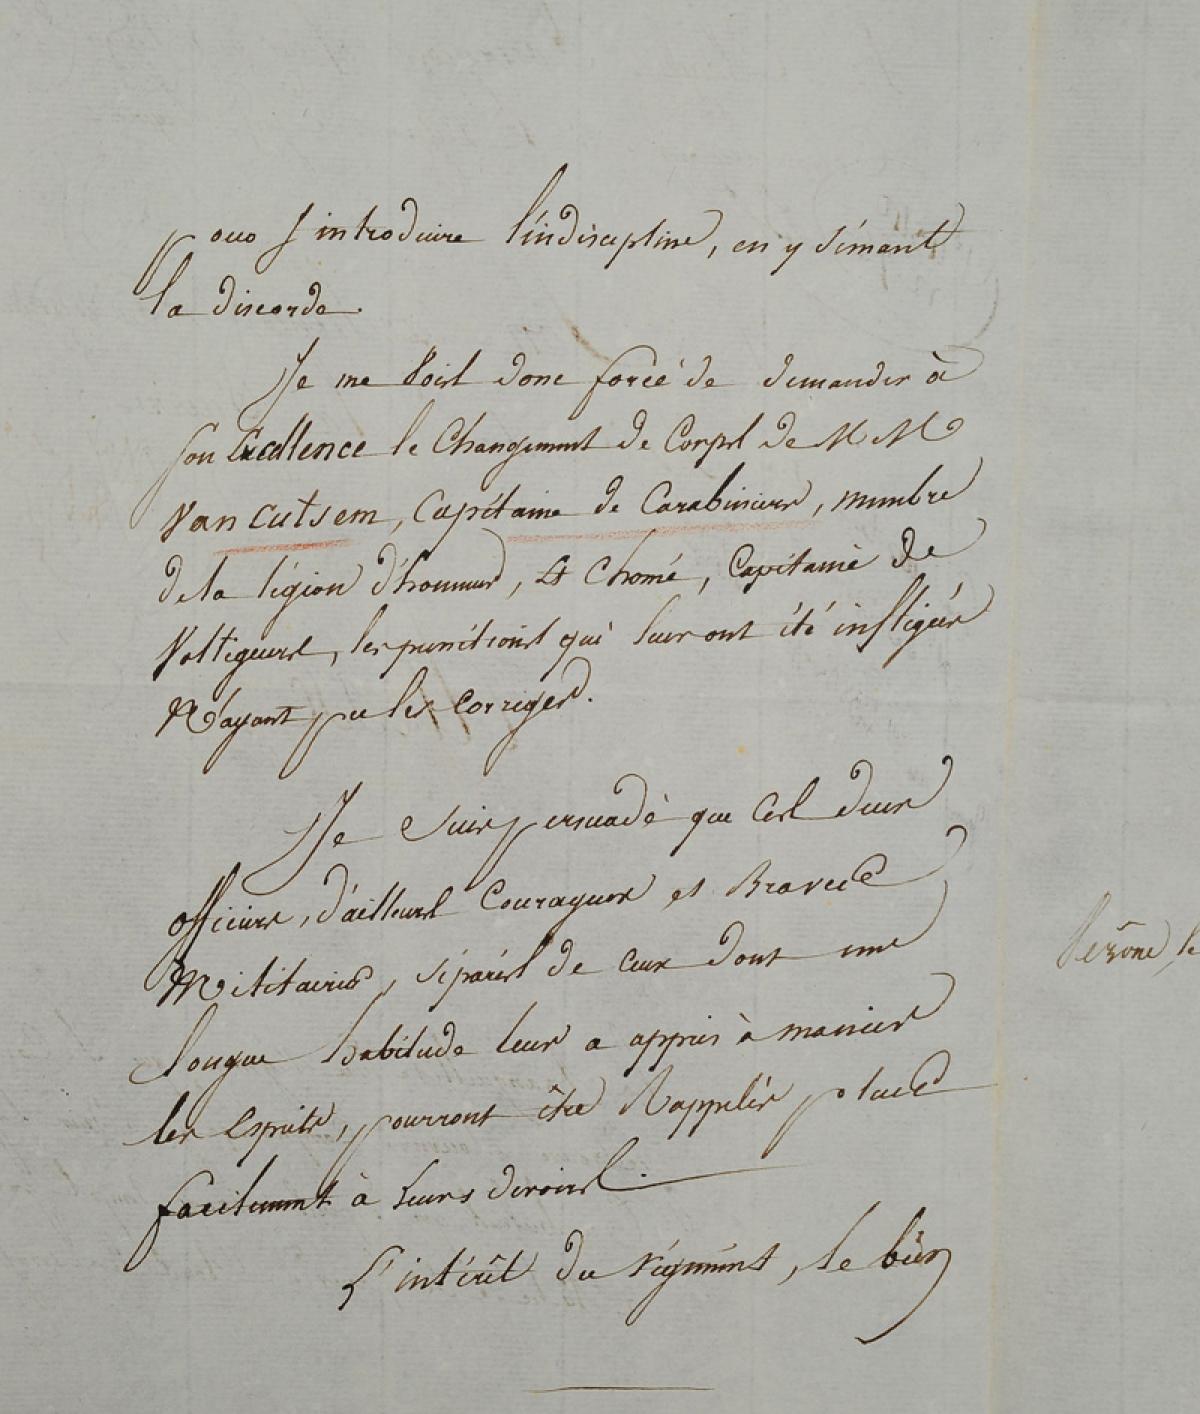 pour s'introduire l'indiscipline, en y sémant
la discorde.
Je me vois donc forcé de demander à
son Excellence le Changement de Corps de M M
Van Cutsem, Capitaine de Carabiniers, membre
de la légion d'honneur, et Chomé, Capitaine de
Voltigeurs, les punitions qui leur ont été infligées
N'ayant pu les corriger.
Je suis persuadé que Ces deux
officiers, d'ailleurs Courageux et Braves
Militaires, séparés de ceux dont une
longue habitude leur a appris à manier
les Esprits, pourront être Rappelés plus
facilement à leurs devoirs.
L'intérêt du régiment, le bien
Verône, le